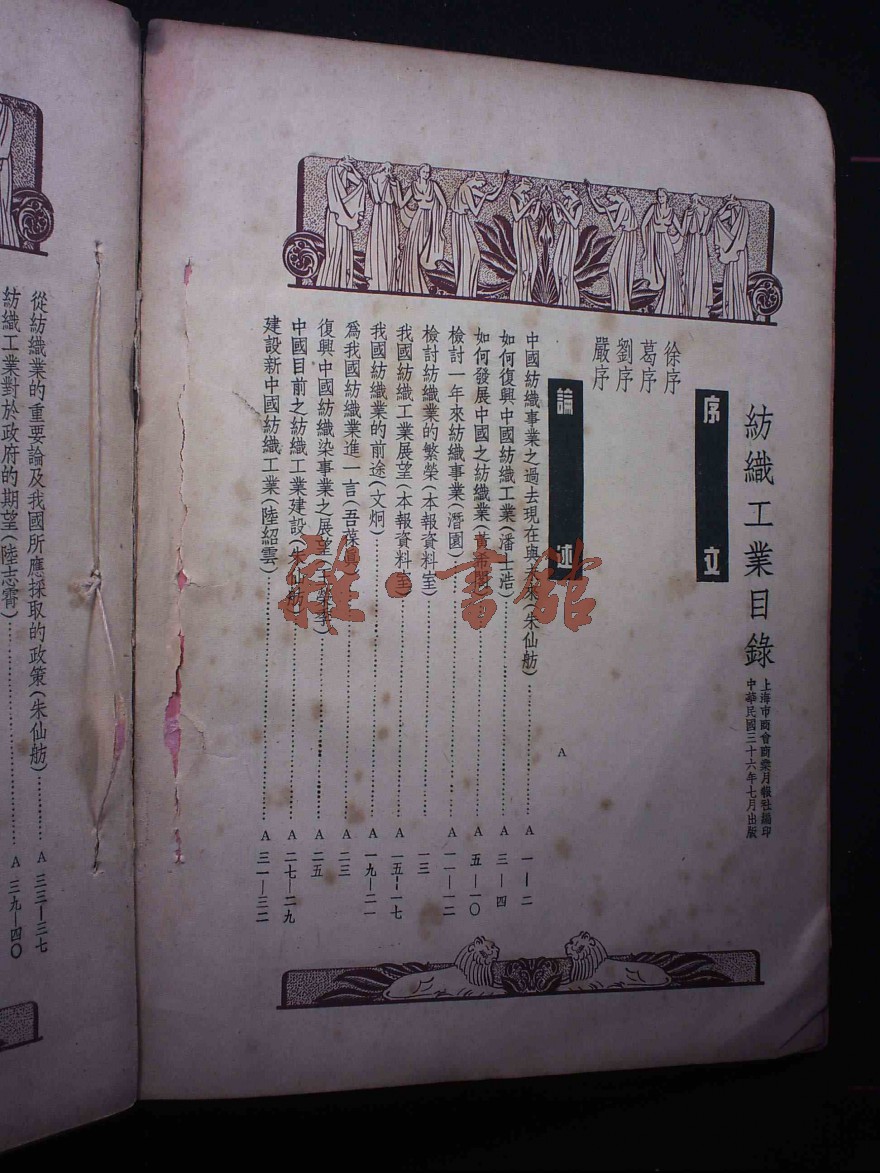 紡織工業目錄
上海市商會商業月報社編印
中華民國三十六年七月出版
序文
徐序
葛序
劉序
嚴序
論述
A
中國紡織事業之過去現在與未來(朱仙舫)……A 一—二
如何復興中國紡織工業(潘士浩)……A 三—四
如何發展中國之紡織業(黃希閣)……A 五—一〇
檢討一年來紡織事業(潛園)……A 一一—一二
檢討紡織業的繁榮(本報資料室)……一三
我國紡織工業展望(本報資料室)……A 一五—一七
我國紡織業的前途(文炯)……A 一九—二一
為我國紡織業進一言(吾葆真)……A 二三
復興中國紡織染事業之展望……A 二五
中國目前之紡織工業建設(朱仙舫)……A 二七—二九
建設新中國紡織工業(陸紹雲)……A 三一—三二
從紡織業的重要論及我國所應採取的政策(朱仙舫)……A 三三—三七
紡織工業對於政府的期望(陸志霄)……A 三九—四〇
雜·書館